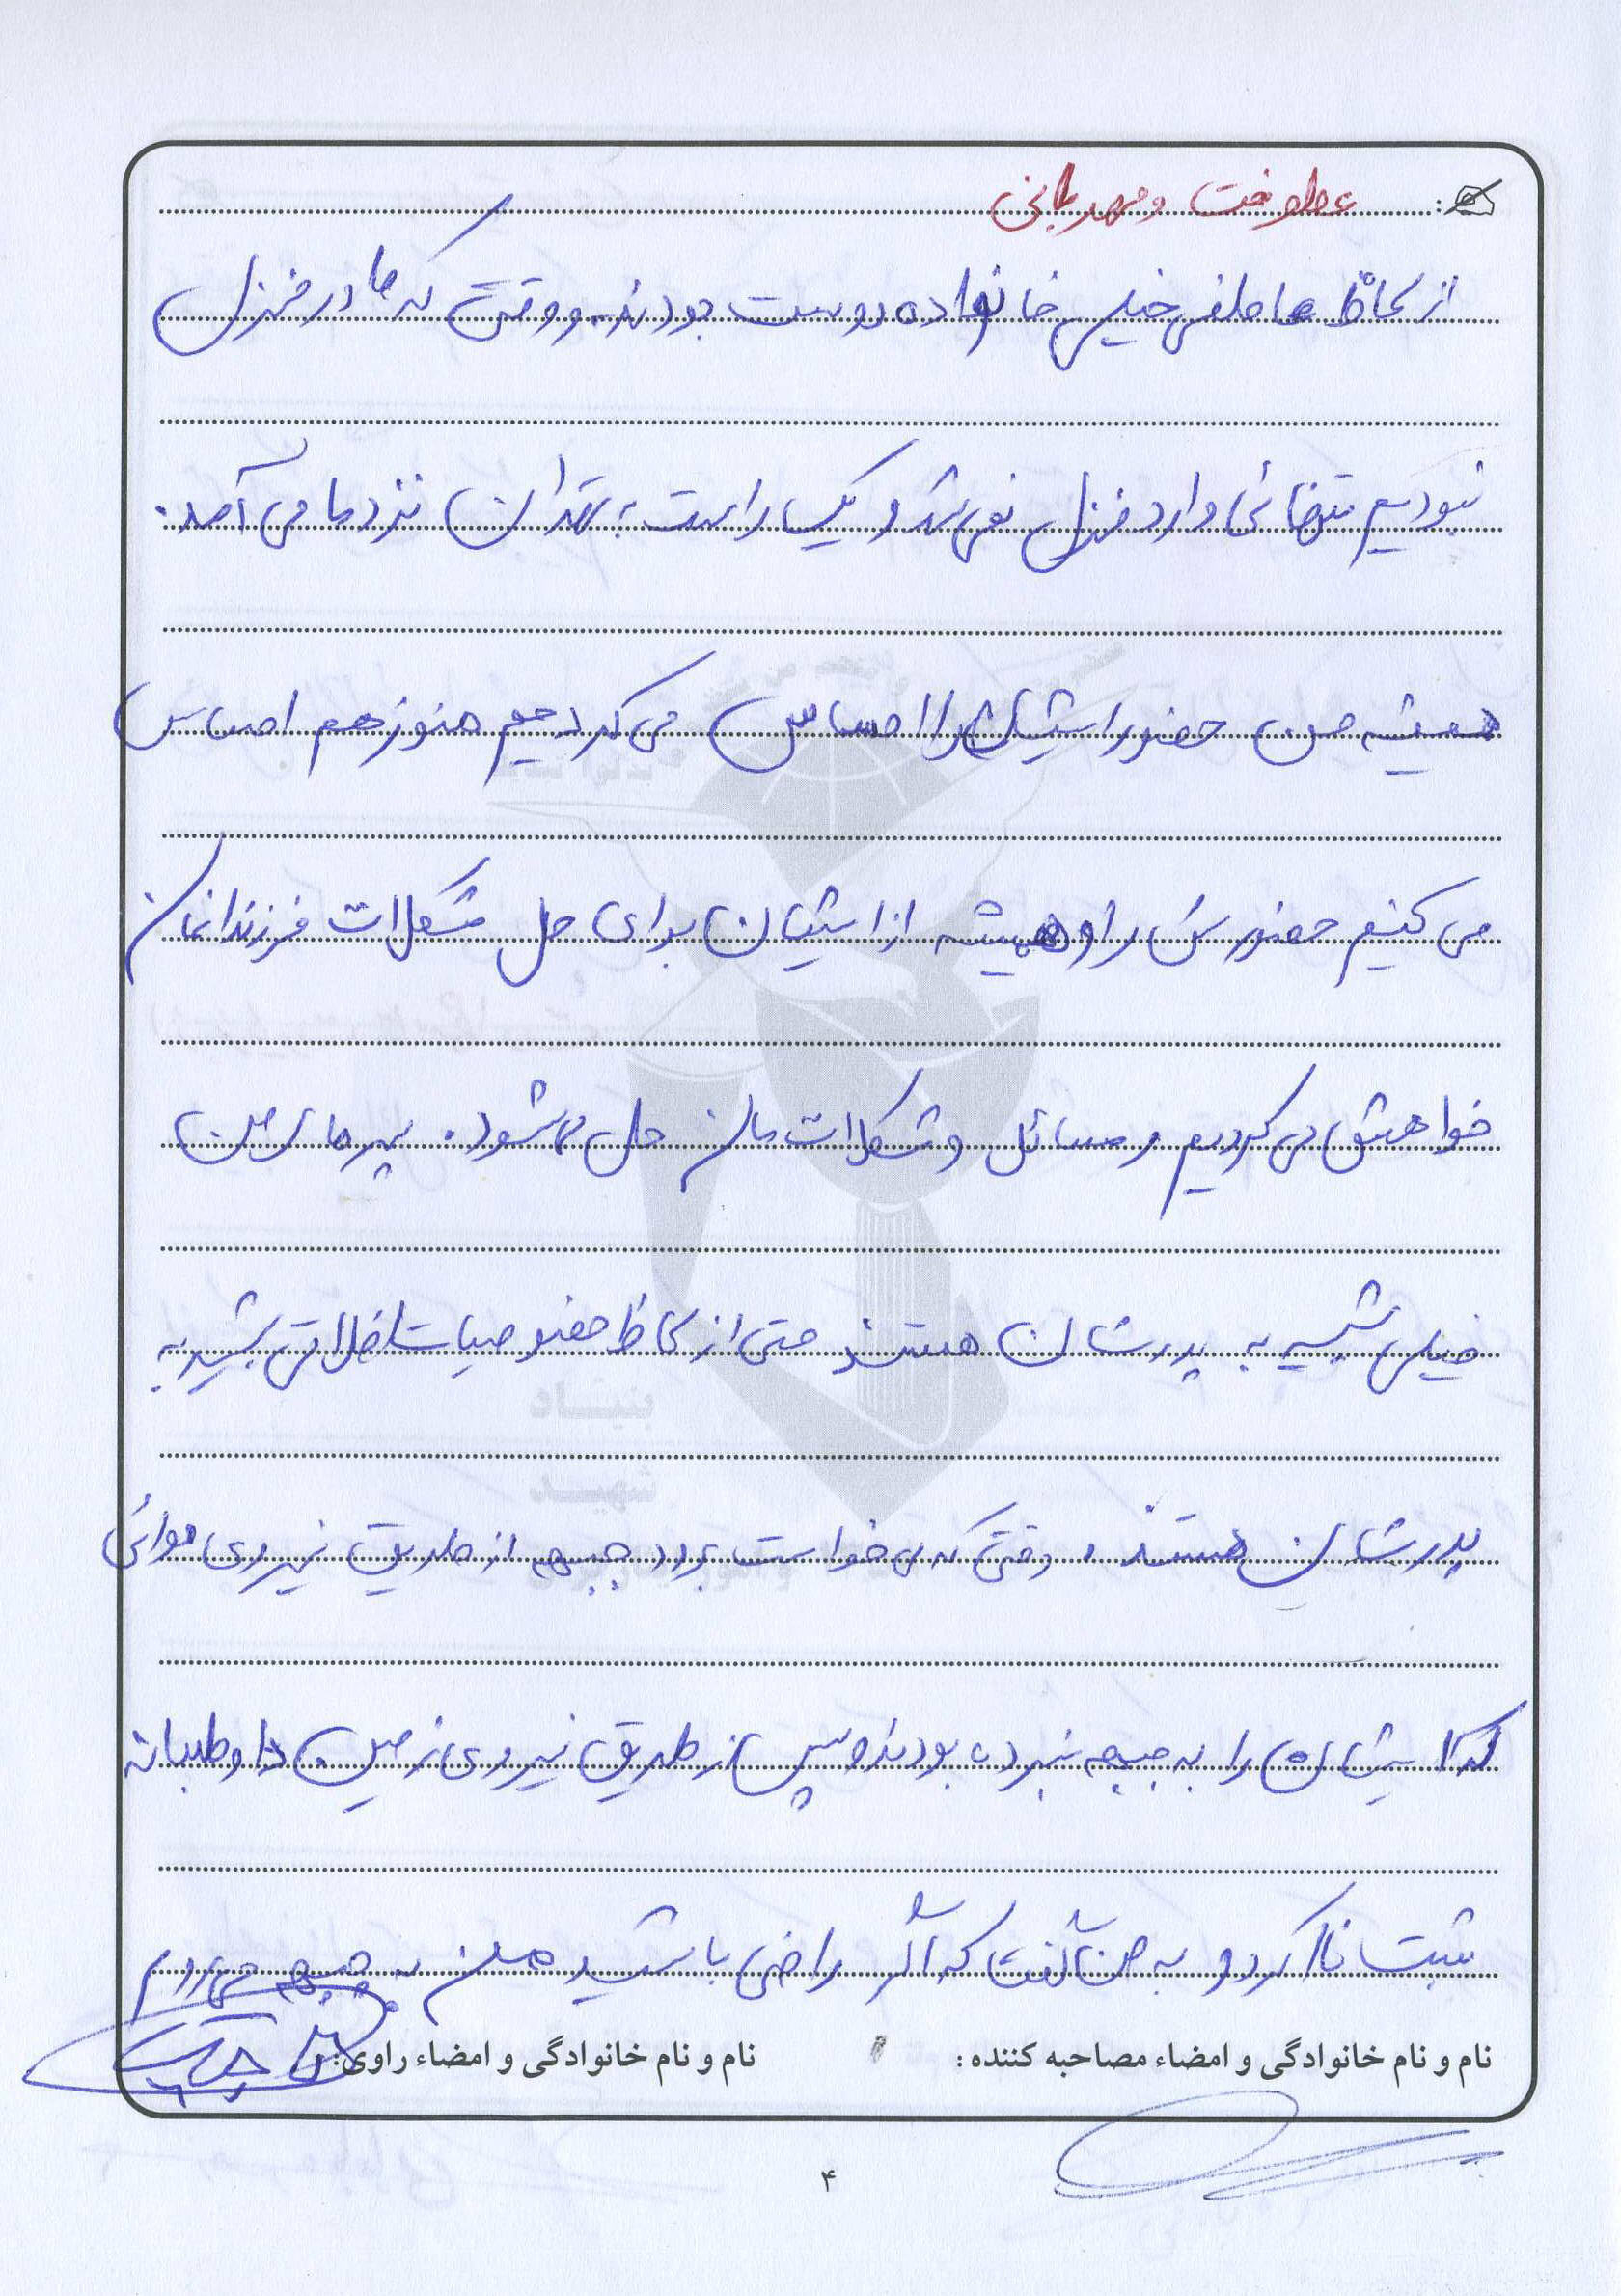 عطوفت و مهربانی
از لحاظ عاطفی خیلی خانواده دوست بودند و وقتی که ما در منزل
نبودیم تنهائی وارد منزل نمی شد و یک راست به تهران نزد ما می آمد.
همیشه من حضور ایشان را احساس می کردیم هنوز هم احساس
می کنیم حضورش را و همیشه از ایشان برای حل مشکلات فرزندانمان
خواهش می کردیم و مسائل و مشکلات مان حل می شود. پسرهای من
خیلی شبیه به پدرشان هستند حتی از لحاظ خصوصیات اخلاقی شبیه به
پدرشان هستند، وقتی که می خواست برود جبهه از طریق نیروی هوائی
که ایشان را به جبهه نبرده بودند و سپس از طریق نیروی زمینی داوطلبانه
ثبت نام کرد و به من گفت که اگر راضی باشید من به جبهه می روم
نام و نام خانوادگی و امضاء مصاحبه کننده :
نام و نام خانوادگی و امضاء راوی :
بنیاد
شهید
۴